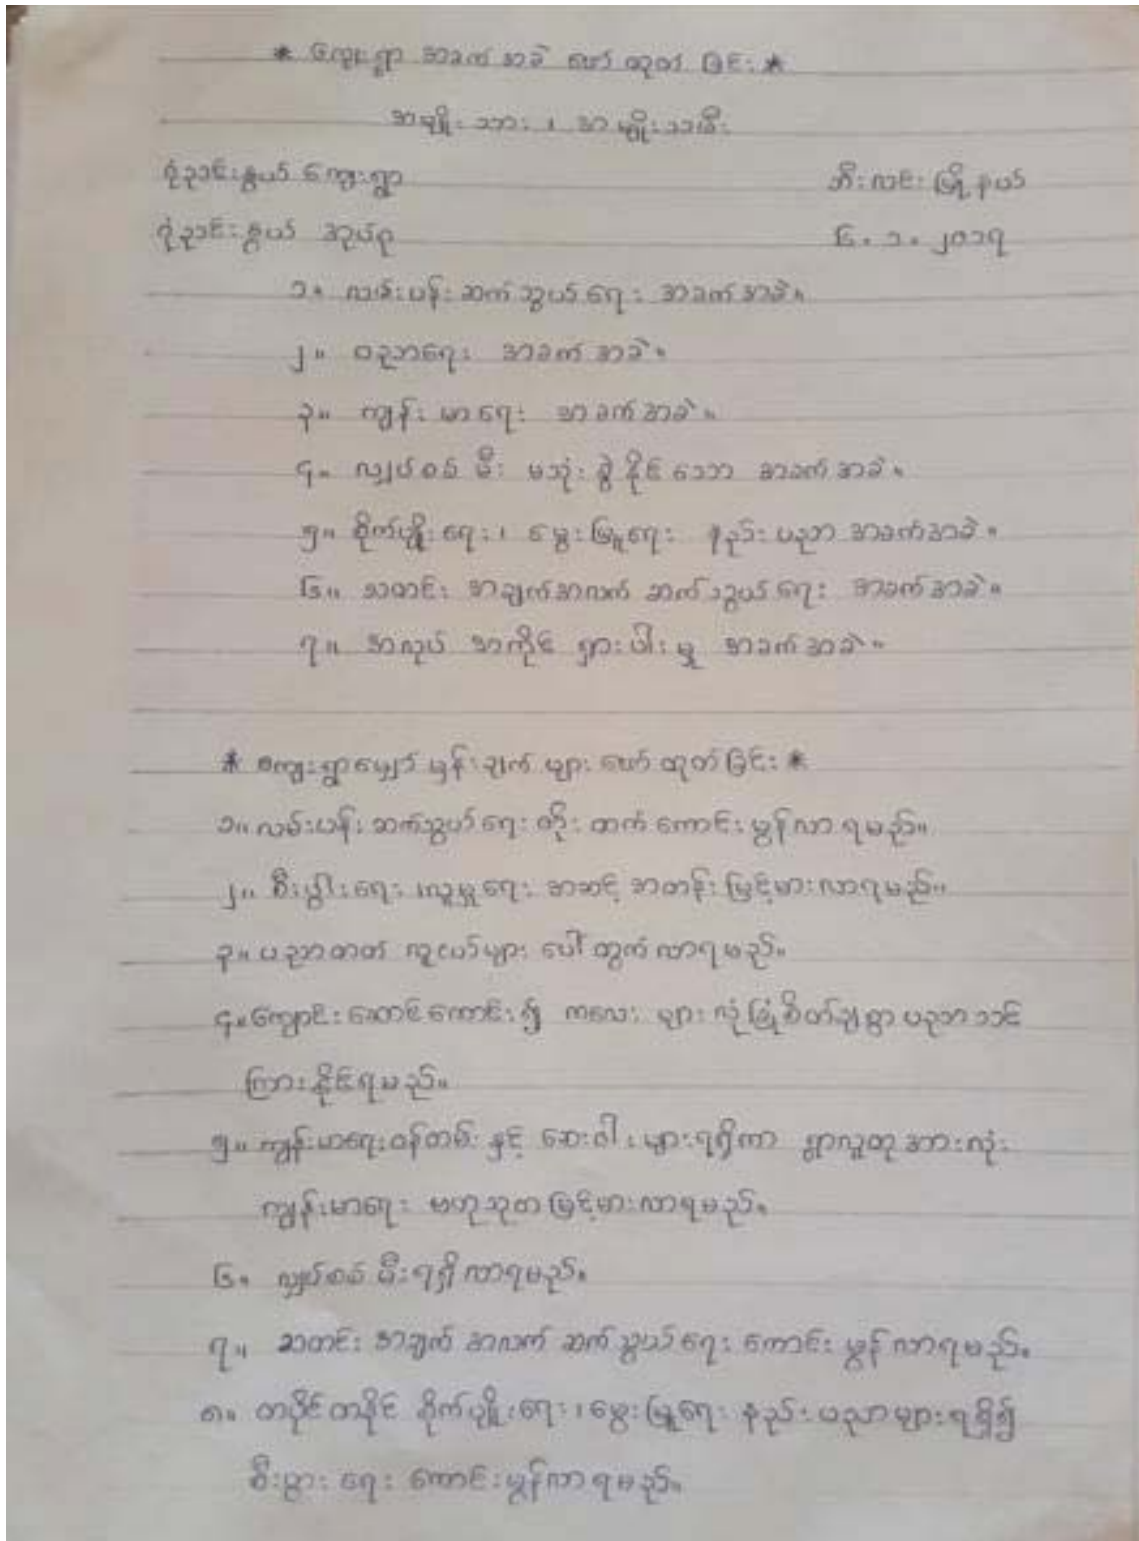 * ကျေးရွာ အခက် အခဲ ဖော် ထုတ် ခြင်း *
အမျိုး သား ၊ အမျိုး သမီး
ဂုံညင်းနွယ် ကျေးရွာ
ဘီးလင်း မြို့ နယ်
ဂုံညင်းနွယ် အုပ်စု
၆. ၁. ၂၀၁၇
၁။ လမ်းပန်း ဆက်သွယ် ရေး အခက် အခဲ။
၂။ ပညာရေး အခက် အခဲ။
၃။ ကျန်း မာ ရေး အခက် အခဲ။
၄။ လျှပ်စစ် မီး မသုံး စွဲ နိုင် သော အခက် အခဲ။
၅။ စိုက်ပျိုး ရေး ၊ မွေး မြူရေး နည်း ပညာ အခက်အခဲ။
၆။ သတင်း အချက်အလက် ဆက်သွယ် ရေး အခက် အခဲ။
၇။ အလုပ် အကိုင် ရှား ပါး မှု အခက် အခဲ။
* ကျေးရွာမျှော် မှန်းချက် များ ဖော် ထုတ် ခြင်း *
၁။ လမ်းပန်း ဆက်သွယ် ရေး တိုး တက် ကောင်း မွန်လာ ရမည်။
၂။ စီးပွါး ရေး ၊လူမှုရေး အဆင့် အတန်း မြင့်မားလာရမည်။
၃။ ပညာတတ် လူငယ်များ ပေါ် ထွက် လာရမည်။
၄။ ကျောင်းဆောင်ကောင်း၍ ကလေး များ လုံခြုံစိတ်ချစွာ ပညာ သင်
ကြား နိုင်ရမည်။
၅။ ကျန်းမာရေးဝန်ထမ်း နှင့် ဆေးဝါး များရရှိကာ ရွာလူထု အားလုံး
ကျန်းမာရေး ဗဟုသုတ မြင့်မားလာရမည်။
၆။ လျှပ်စစ် မီးရရှိ လာရမည်။
၇။ သတင်း အချက် အလက် ဆက်သွယ် ရေး ကောင်း မွန် လာရမည်။
၈။ တပိုင်တနိုင် စိုက်ပျိုးရေး ၊ မွေးမြူရေး နည်းပညာများရရှိ၍
စီးပွား ရေး ကောင်းမွန်လာရမည်။